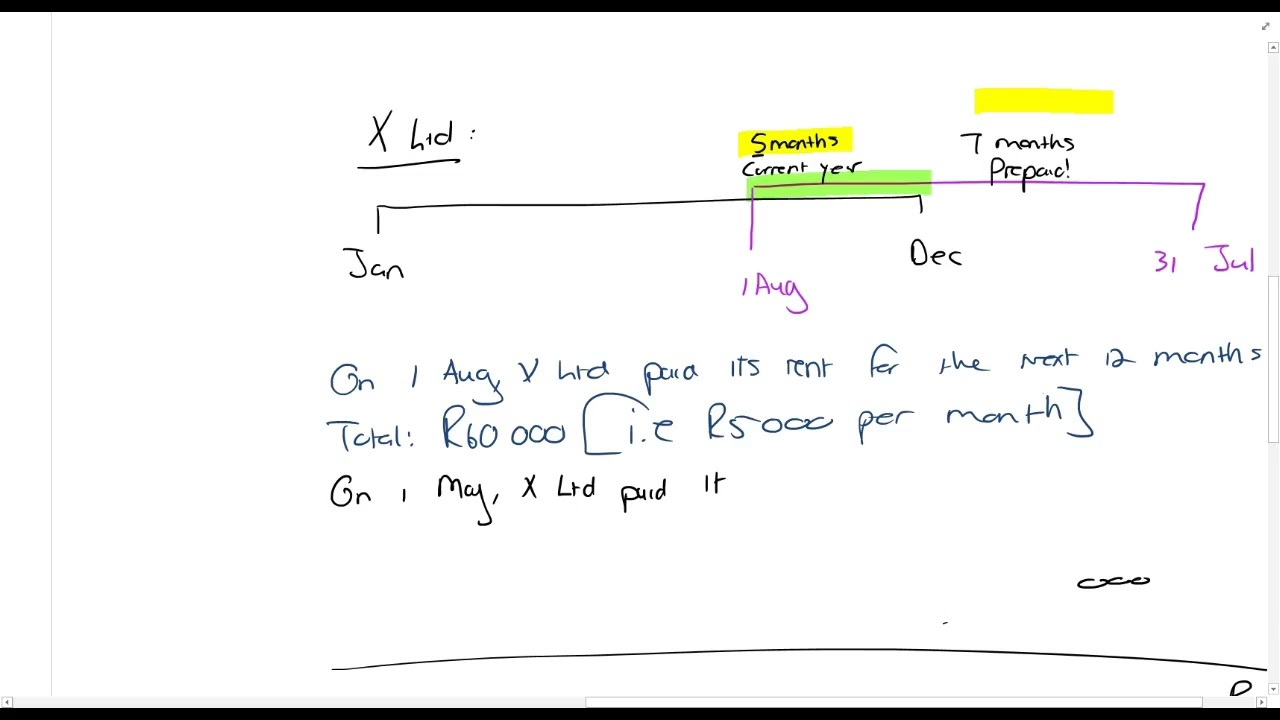 X Ltd:
5 months
Current yer
7 months
Prepaid!
Jan
Dec
1 Aug
31 Jul
On 1 Aug, X Ltd paid its rent for the next 12 months
Total: R60 000 [i.e R5000 per month]
On 1 May, X Ltd paid it